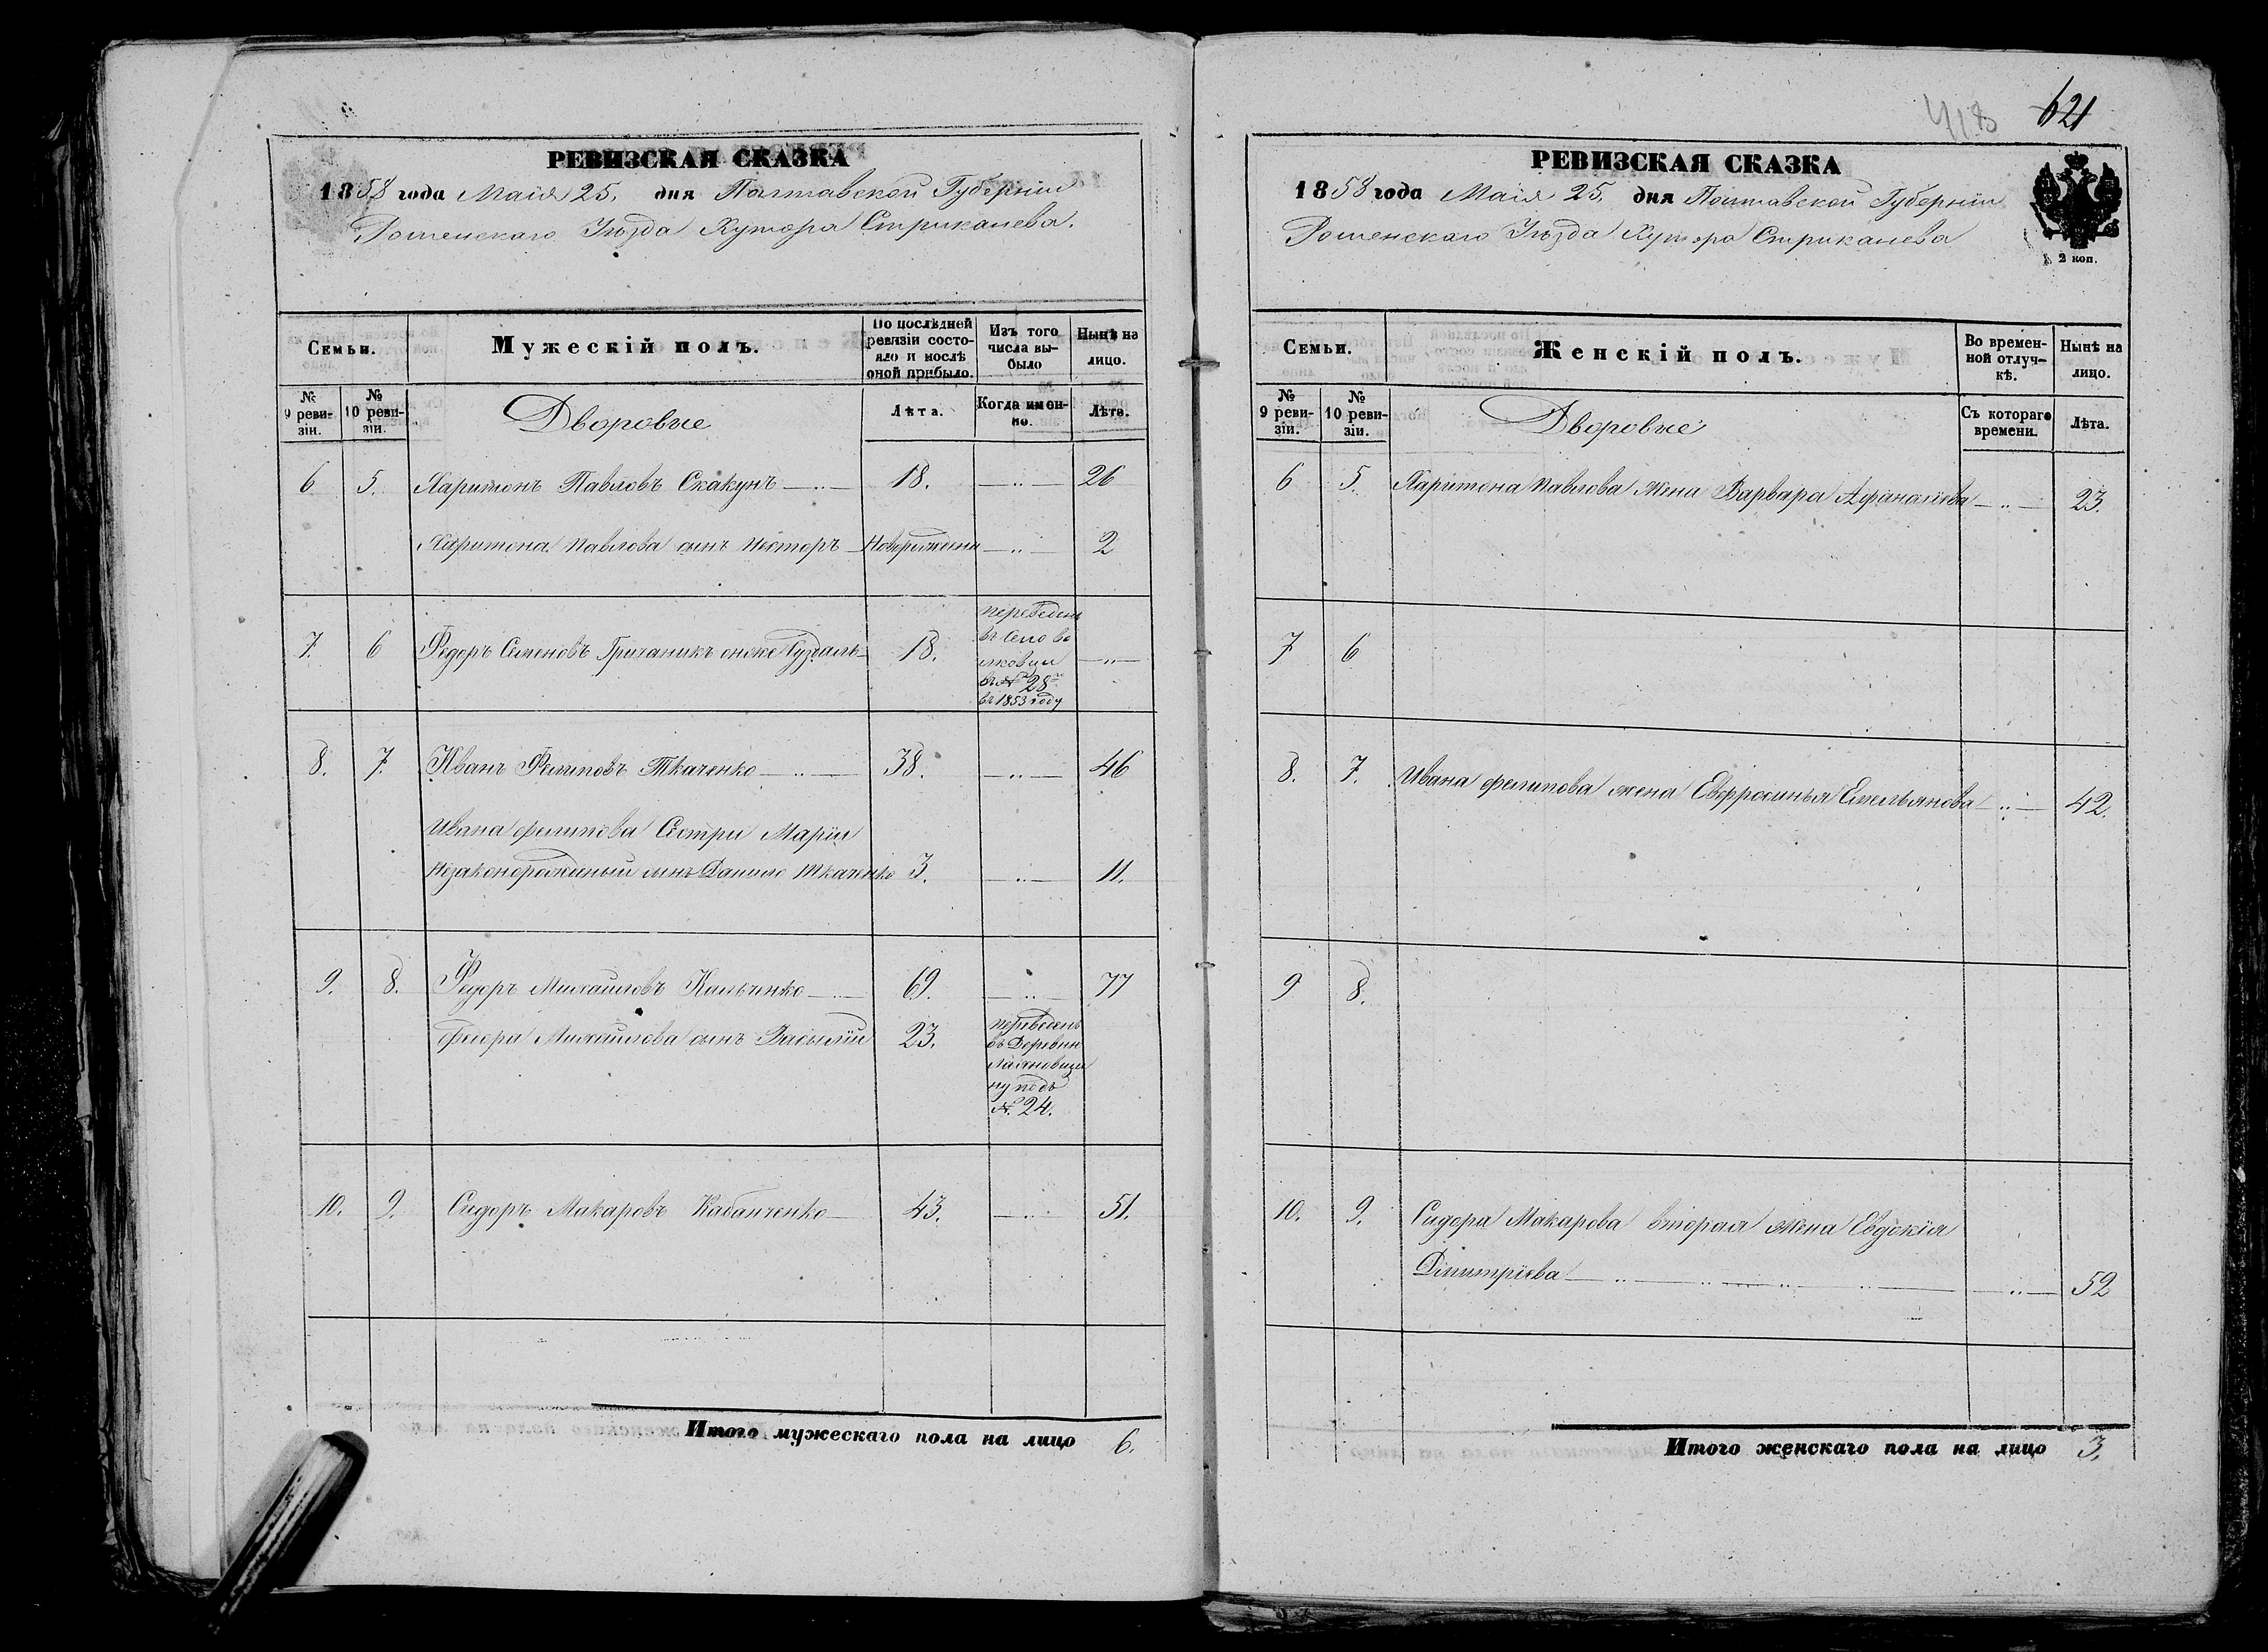 РЕВИЗСКАЯ СКАЗКА
1858 года Маія 25. дня Полтавской Губерніи
Роменскаго Уѣзда Хутора Стрикачева.
Семьи.
Мужескій полъ.
По послѣдней ревизіи состояло и послѣ оной прибыло.
Изъ того числа выбыло
Нынѣ на лицо.
№ 9 ревизіи.
№ 10 ревизіи.
Дворовые
Лѣта.
Когда именно.
Лѣта.
6 5. Харитонъ Павловъ Скакунъ 18. 26
Харитона Павлова сынъ Несторъ Новорожденъ 2
7. 6 Федоръ Семеновъ Гричаникъ онже 18.
переведенъ
въ Село
въ № 28
въ 1853 году
8. 7. Иванъ Филиповъ Ткаченко 38. 46
Ивана филипова Сестры Маріи
Незаконорожденный сынъ Данило Ткаченко 3. 11.
9. 8. Федоръ Михайловъ Кальченко 69. 77
Федора Михайлова сынъ Василій 23.
переведенъ
въ Деревню
ну подъ
№. 24.
10. 9. Сидоръ Макаровъ Кабанченко 43. 51.
Итого мужескаго пола на лицо 6.
418 621
РЕВИЗСКАЯ СКАЗКА
1858 года Маія 25. дня Полтавской Губерніи
Роменскаго Уѣзда Хутора Стрикачева
2 коп.
Семьи.
Женскій полъ.
Во временной отлучкѣ.
Нынѣ на лицо.
№ 9 ревизіи.
№ 10 ревизіи.
Дворовые
Съ котораго времени.
Лѣта.
6 5. Харитона Павлова жена Варвара Афанасіева 23.
7 6
8. 7. Ивана филипова жена Евфросинья Емельянова 42.
9 8.
10. 9. Сидора Макарова вторая жена Евдокія
Дмитріева 52
Итого женскаго пола на лицо 3.